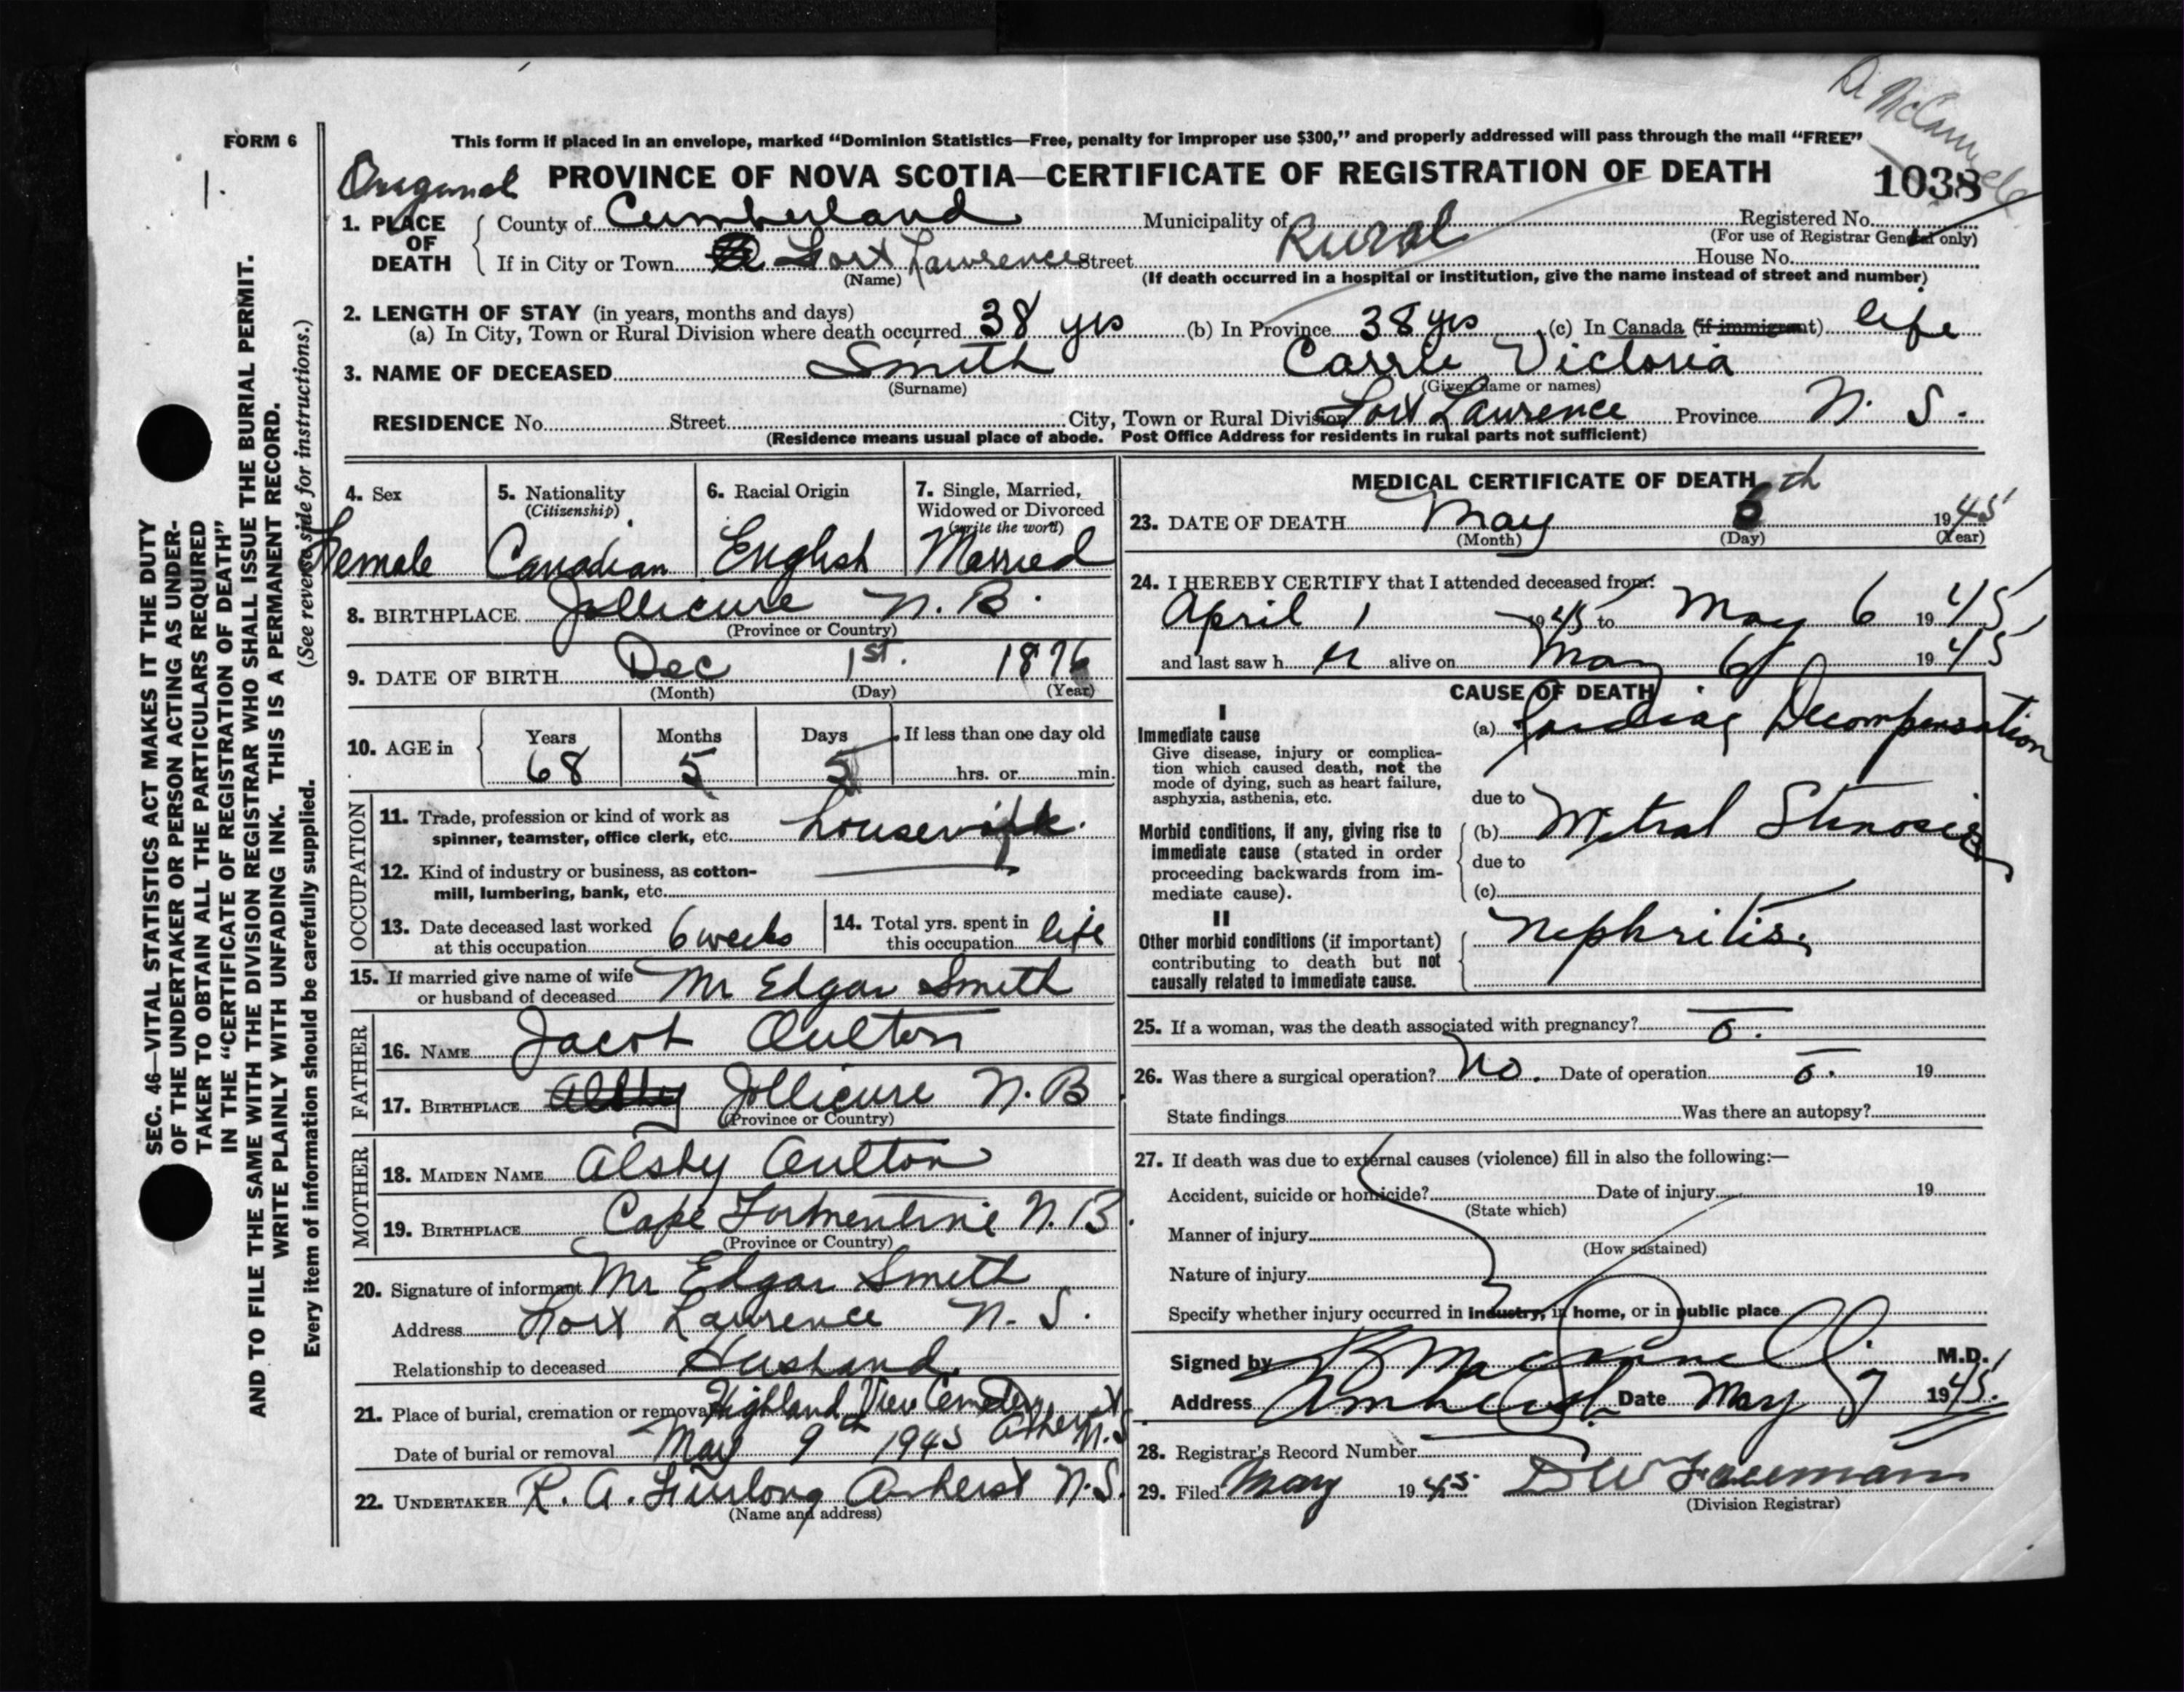 Dr McConnell
FORM 6
1.
This form if placed in an envelope, marked “Dominion Statistics—Free, penalty for improper use $300,” and properly addressed will pass through the mail “FREE”
Original PROVINCE OF NOVA SCOTIA—CERTIFICATE OF REGISTRATION OF DEATH 1038
1. PLACE OF DEATH
County of Cumberland Municipality of Rural Registered No.
(For use of Registrar General only)
If in City or Town Fort Lawrence Street House No.
(Name) (If death occurred in a hospital or institution, give the name instead of street and number)
2. LENGTH OF STAY (in years, months and days)
(a) In City, Town or Rural Division where death occurred 38 yrs (b) In Province 38 yrs (c) In Canada (if immigrant) life
3. NAME OF DECEASED Smith Carrie Victoria
(Surname) (Given name or names)
RESIDENCE No. Street City, Town or Rural Division Fort Lawrence Province N. S.
(Residence means usual place of abode. Post Office Address for residents in rural parts not sufficient)
4. Sex
Female
5. Nationality
(Citizenship)
Canadian
6. Racial Origin
English
7. Single, Married,
Widowed or Divorced
(write the word)
Married
8. BIRTHPLACE Jollicure N. B.
(Province or Country)
9. DATE OF BIRTH Dec 1st. 1876
(Month) (Day) (Year)
10. AGE in Years Months Days If less than one day old
68 5 5 hrs. or min.
OCCUPATION
11. Trade, profession or kind of work as
spinner, teamster, office clerk, etc. housework.
12. Kind of industry or business, as cotton-
mill, lumbering, bank, etc.
13. Date deceased last worked
at this occupation 6 weeks
14. Total yrs. spent in
this occupation life
15. If married give name of wife
or husband of deceased Mr Edgar Smith
FATHER
16. NAME Jacob Oulton
17. BIRTHPLACE Jollicure N.B
(Province or Country)
MOTHER
18. MAIDEN NAME Alsby Oulton
19. BIRTHPLACE Cape Tormentine N.B.
(Province or Country)
20. Signature of informant Mr Edgar Smith
Address Fort Lawrence N. S.
Relationship to deceased Husband.
21. Place of burial, cremation or removal Highland View Cemetery
Date of burial or removal May 9th 1945 Amherst N.S
22. UNDERTAKER R. A. Furlong Amherst N.S.
(Name and address)
MEDICAL CERTIFICATE OF DEATH
23. DATE OF DEATH May 6th 1945
(Month) (Day) (Year)
24. I HEREBY CERTIFY that I attended deceased from:
April 1 1945 to May 6 1945
and last saw her alive on May 6 1945
CAUSE OF DEATH
I
Immediate cause
Give disease, injury or complica-
tion which caused death, not the
mode of dying, such as heart failure,
asphyxia, asthenia, etc.
(a) Cardiac Decompensation
due to
Morbid conditions, if any, giving rise to
immediate cause (stated in order
proceeding backwards from im-
mediate cause).
(b) Mitral Stenosis
due to
(c)
II
Other morbid conditions (if important)
contributing to death but not
causally related to immediate cause.
Nephritis.
25. If a woman, was the death associated with pregnancy? o.
26. Was there a surgical operation? No. Date of operation o. 19
State findings Was there an autopsy?
27. If death was due to external causes (violence) fill in also the following:—
Accident, suicide or homicide? Date of injury 19
(State which)
Manner of injury
(How sustained)
Nature of injury
Specify whether injury occurred in industry, in home, or in public place
Signed by M.D.
Address Amherst. Date May 7 1945.
28. Registrar’s Record Number
29. Filed May 1945
(Division Registrar)
SEC. 46—VITAL STATISTICS ACT MAKES IT THE DUTY
OF THE UNDERTAKER OR PERSON ACTING AS UNDER-
TAKER TO OBTAIN ALL THE PARTICULARS REQUIRED
IN THE “CERTIFICATE OF REGISTRATION OF DEATH”
AND TO FILE THE SAME WITH THE DIVISION REGISTRAR WHO SHALL ISSUE THE BURIAL PERMIT.
WRITE PLAINLY WITH UNFADING INK. THIS IS A PERMANENT RECORD.
Every item of information should be carefully supplied. (See reverse side for instructions.)